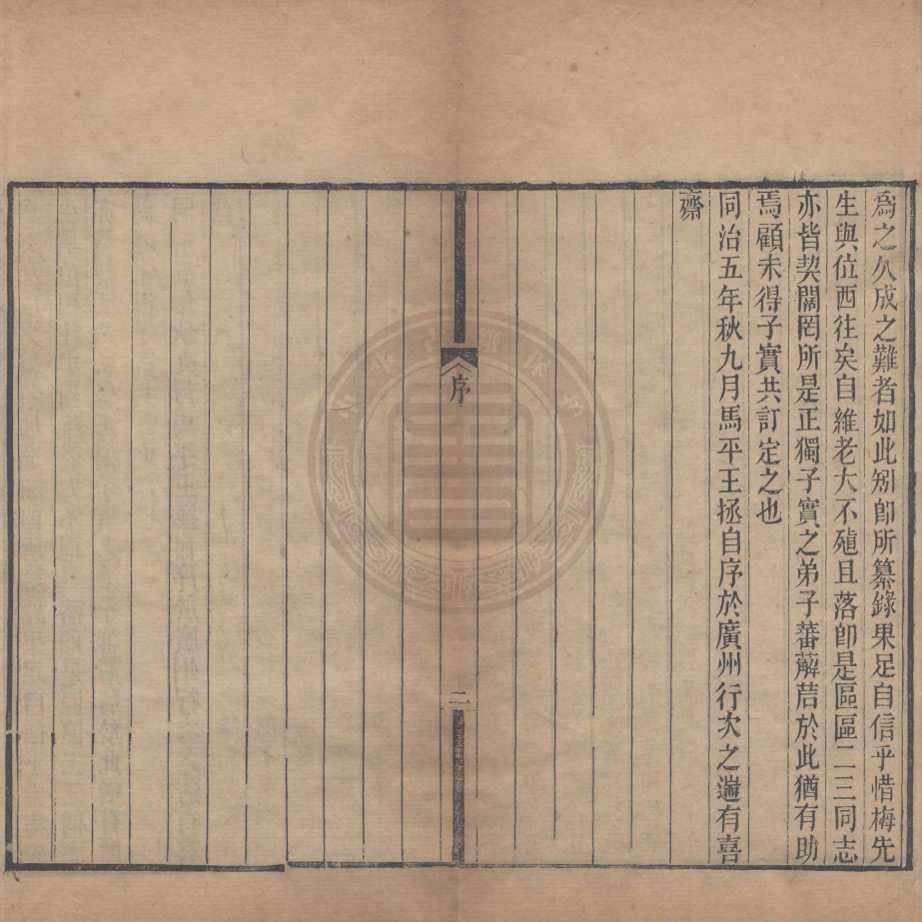 爲之久成之難者如此矧卽所纂錄果足自信乎惜梅先
生與位西往矣自維老大不殖且落卽是區區二三同志
亦皆契闊罔所是正獨子實之弟子蕃解詰於此猶有助
焉顧未得子實共訂定之也
同治五年秋九月馬平王拯自序於廣州行次之遄有喜
齋
序
二